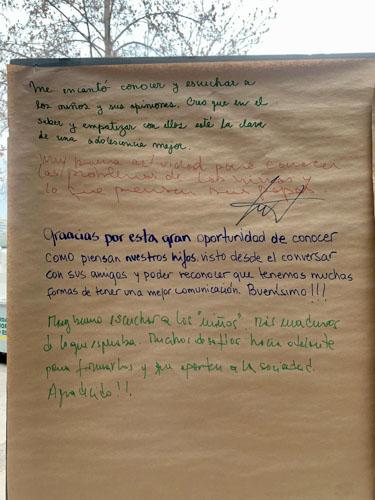 Me encantó conocer y escuchar a
los niños y sus opiniones. Creo que en el
saber y empatizar con ellos esté la clave
de una adolescencia mejor.
Muy buena actividad para conocer
las problemas de los niños y
lo que piensan
Graacias por esta gran oportunidad de conocer
como piensan nuestros hijos, visto desde el conversar
con sus amigos y poder reconocer que tenemos muchas
formas de tener una mejor comunicación. Buenísimo!!!
Muy bueno escuchar a los "niños". Más maduros
de lo que esperaba. Muchos desafíos hacia adelante
para formarlos y que aporten a la sociedad.
Agradecido!!.